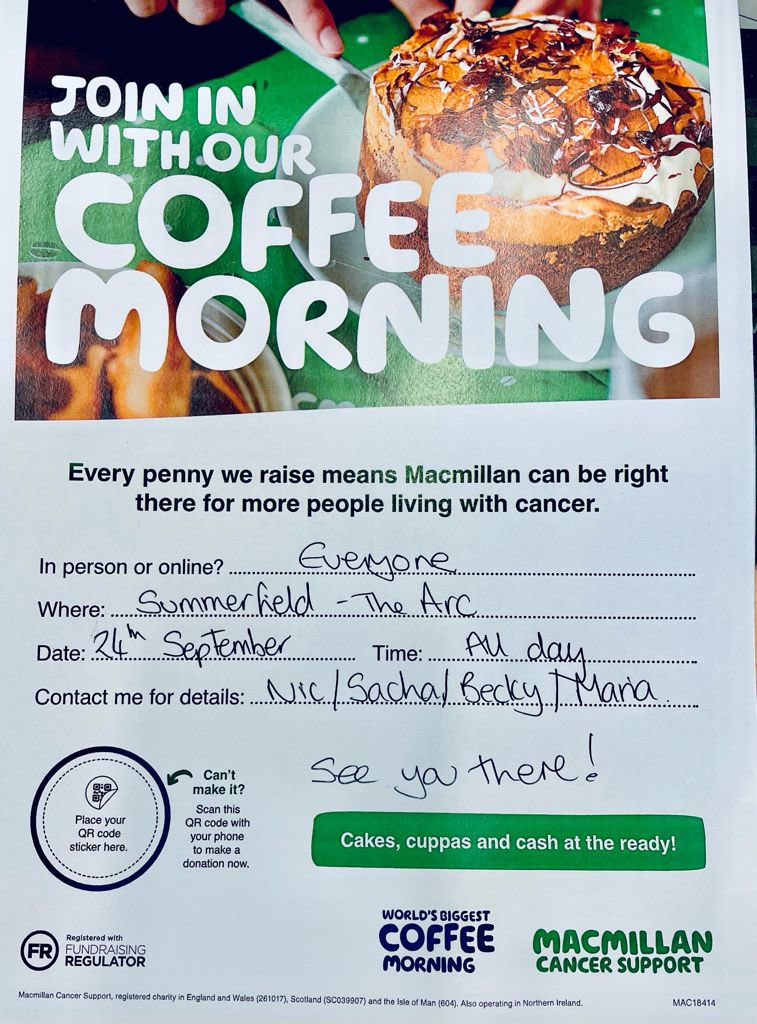 JOIN IN
WITH OUR
COFFEE
MORNING
Every penny we raise means Macmillan can be right
there for more people living with cancer.
In person or online? Everyone
Where: Summerfield - The Arc
Date: 24th September Time: All day
Contact me for details: Nic / Sacha / Becky / Maria
See you there!
Place your
QR code
sticker here.
Can't
make it?
Scan this
QR code with
your phone
to make a
donation now.
Cakes, cuppas and cash at the ready!
FR
Registered with
FUNDRAISING
REGULATOR
WORLD'S BIGGEST
COFFEE
MORNING
MACMILLAN
CANCER SUPPORT
Macmillan Cancer Support, registered charity in England and Wales (261017), Scotland (SC039907) and the Isle of Man (604). Also operating in Northern Ireland.
MAC18414